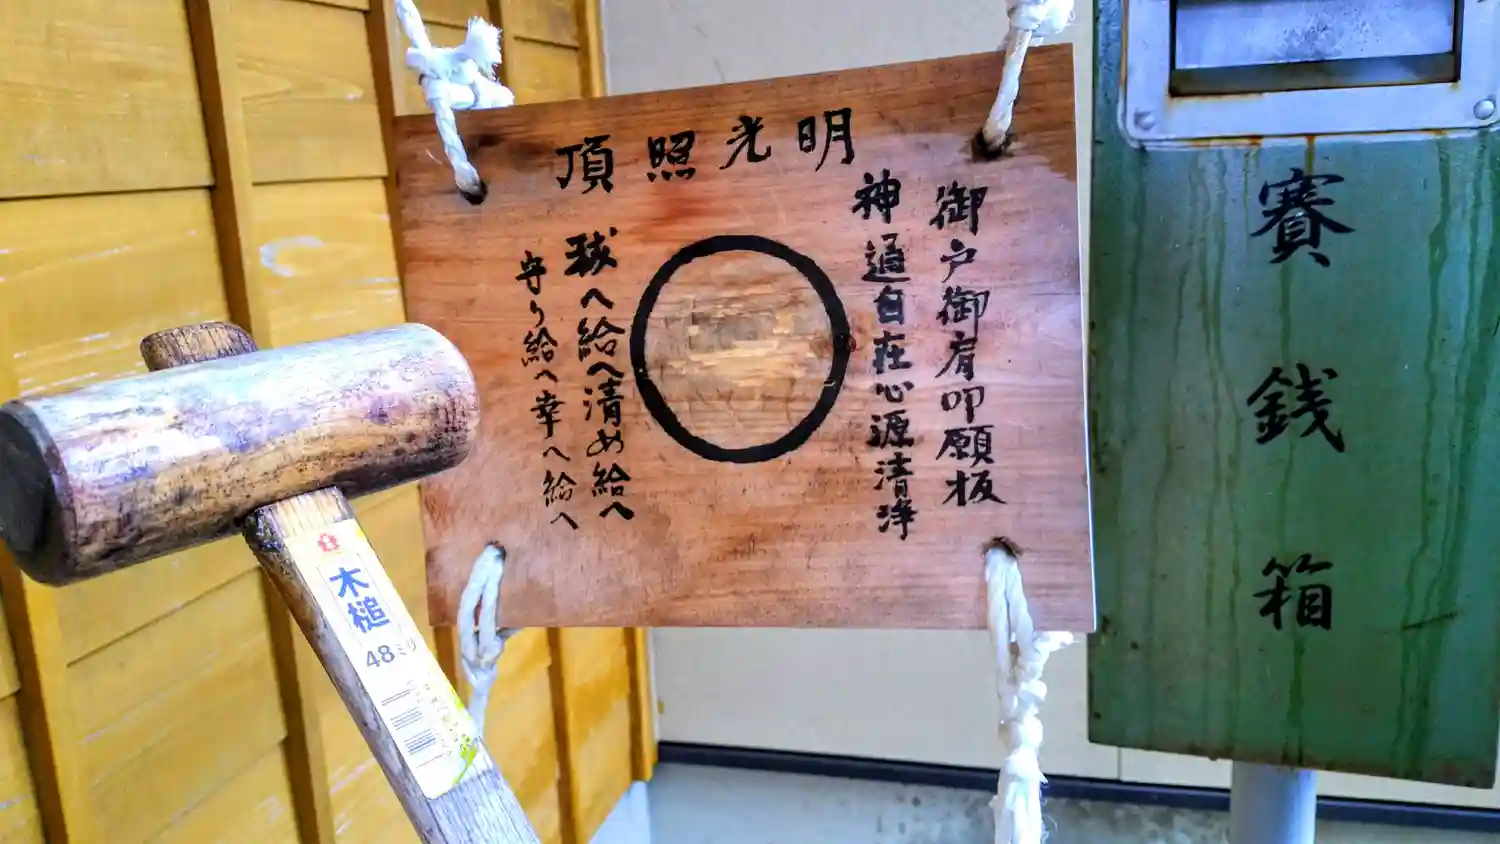 頂照光明
御戸御肩叩願板
神通自在心源清浄
祓へ給へ清め給へ
守り給へ幸へ給へ
賽銭箱
木槌
48ミリ